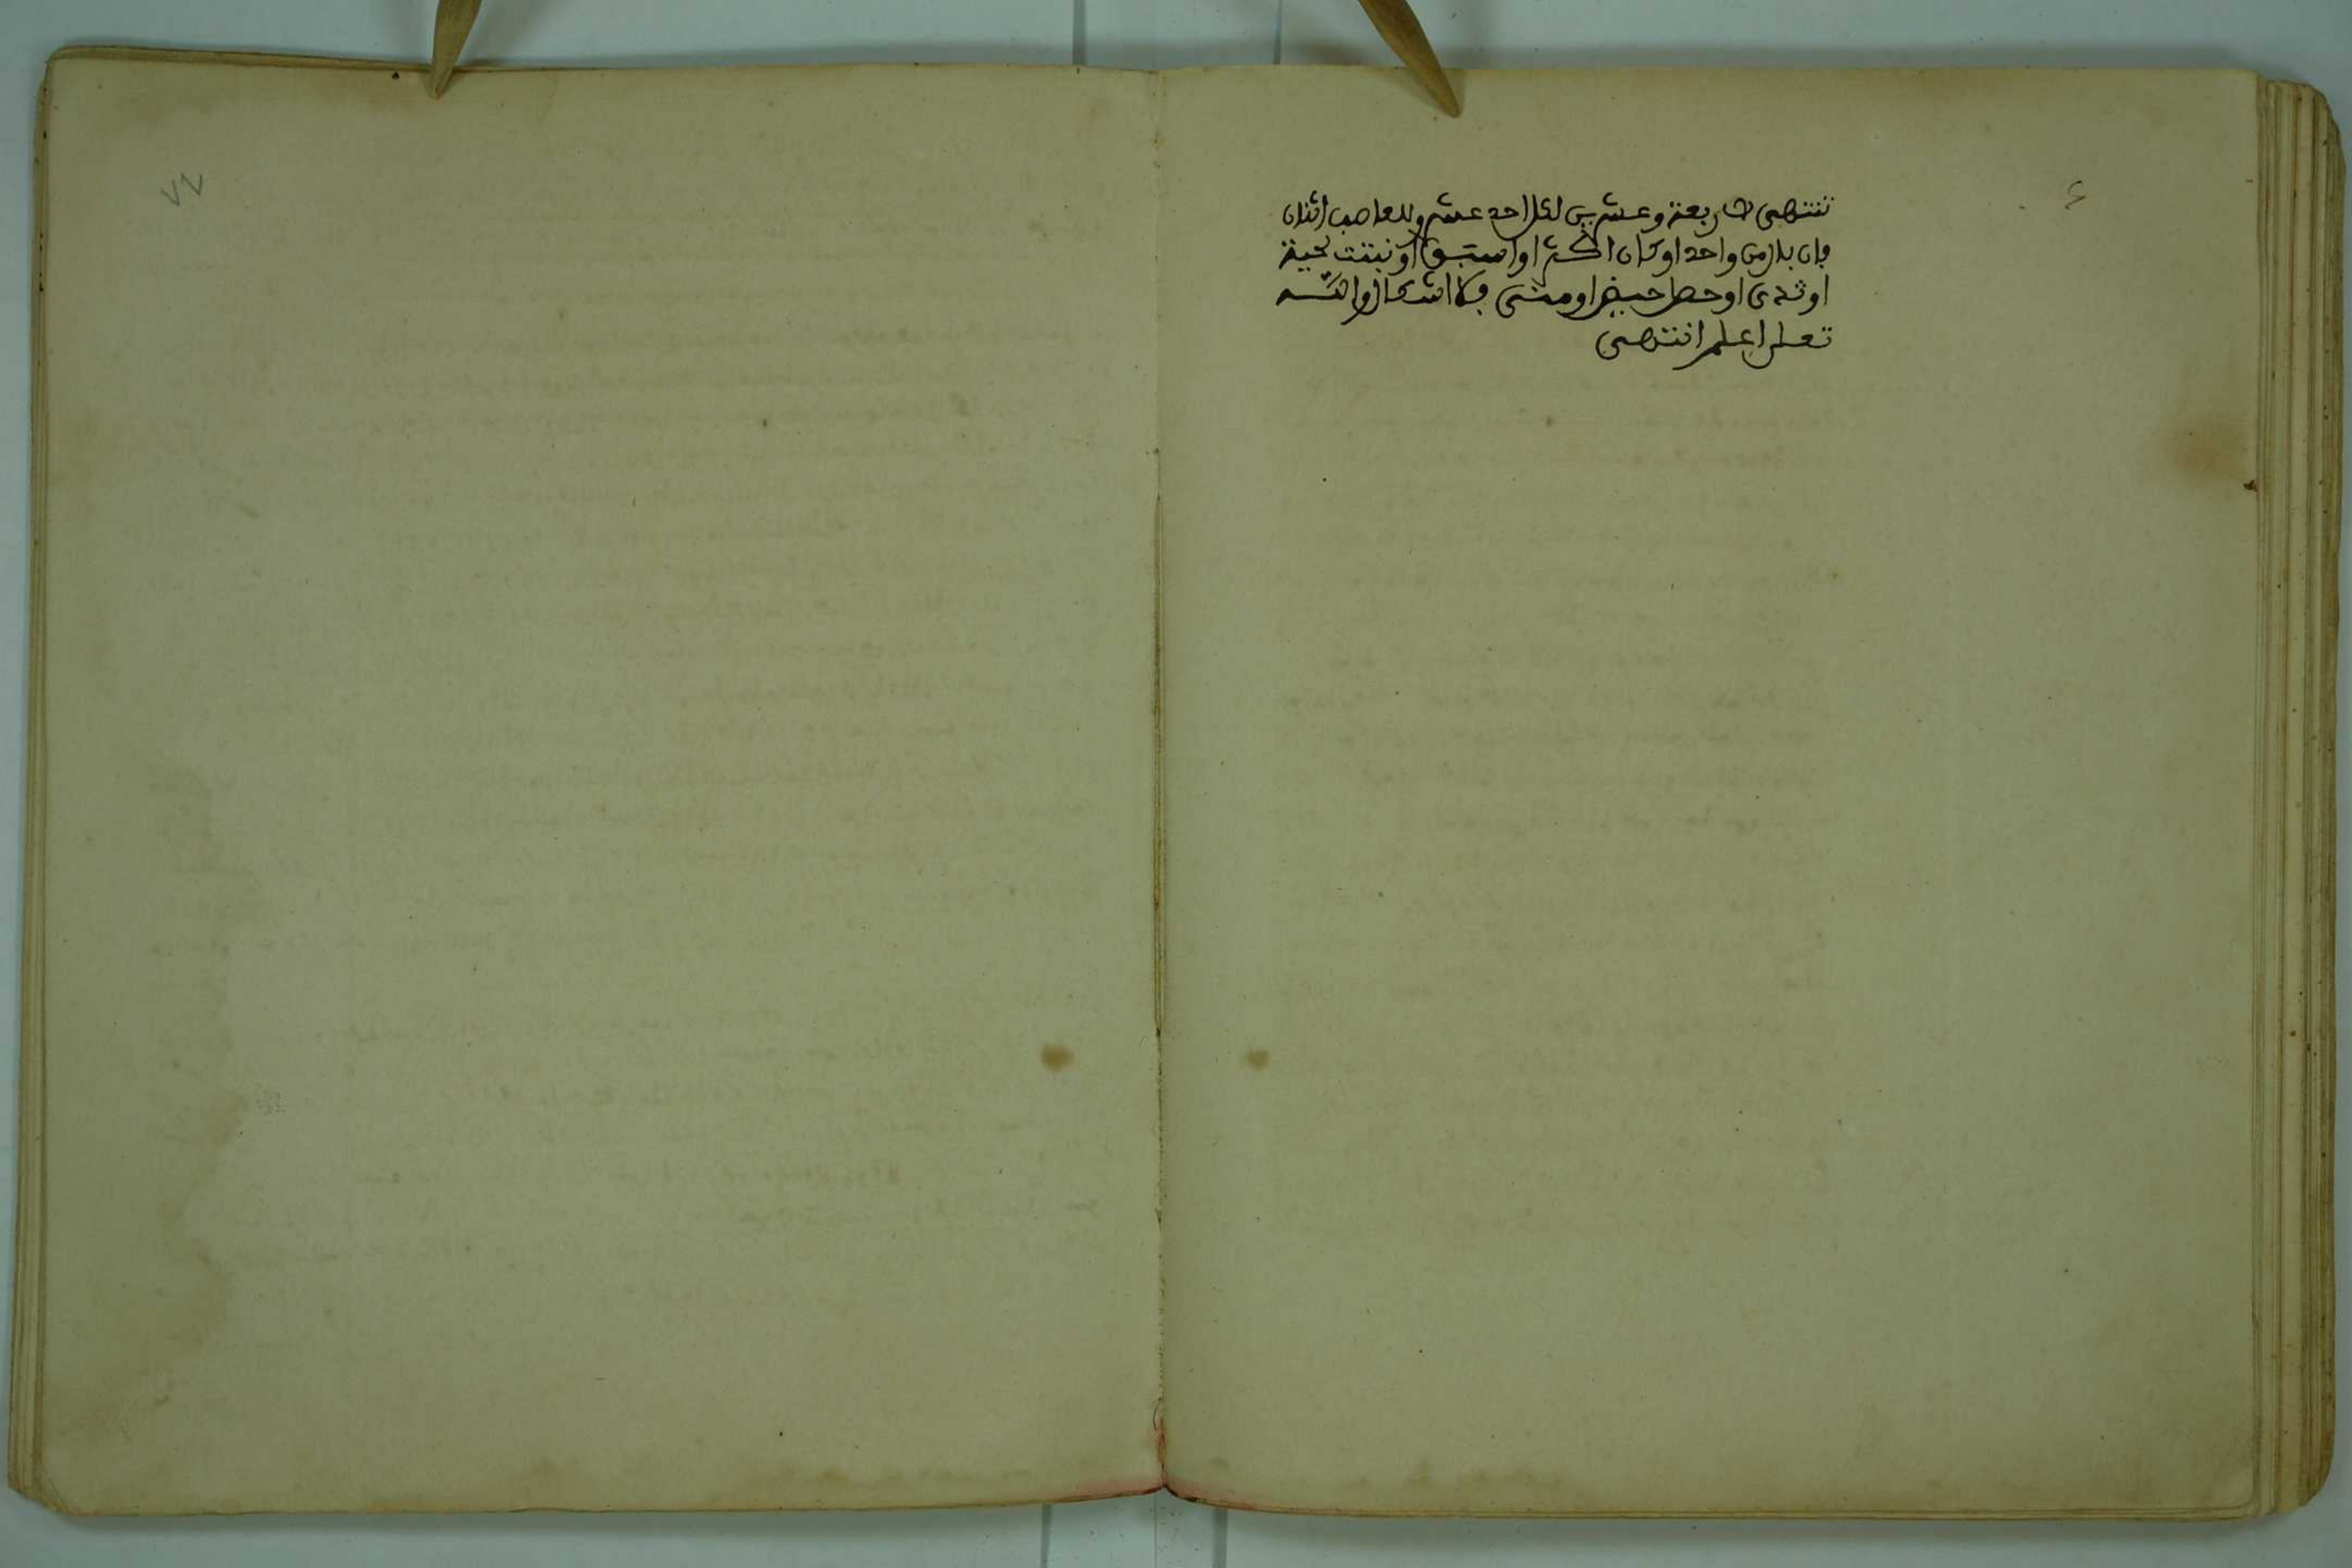 تنتهى لاربعة وعشرين لكل احد عشر وللعاصب اثنان
فان بال من واحد او كان اكثر او اسبق او نبتت لحية
او ثدى او حصل حيض او منى فلا اشكال والله
تعلى اعلم انتهى